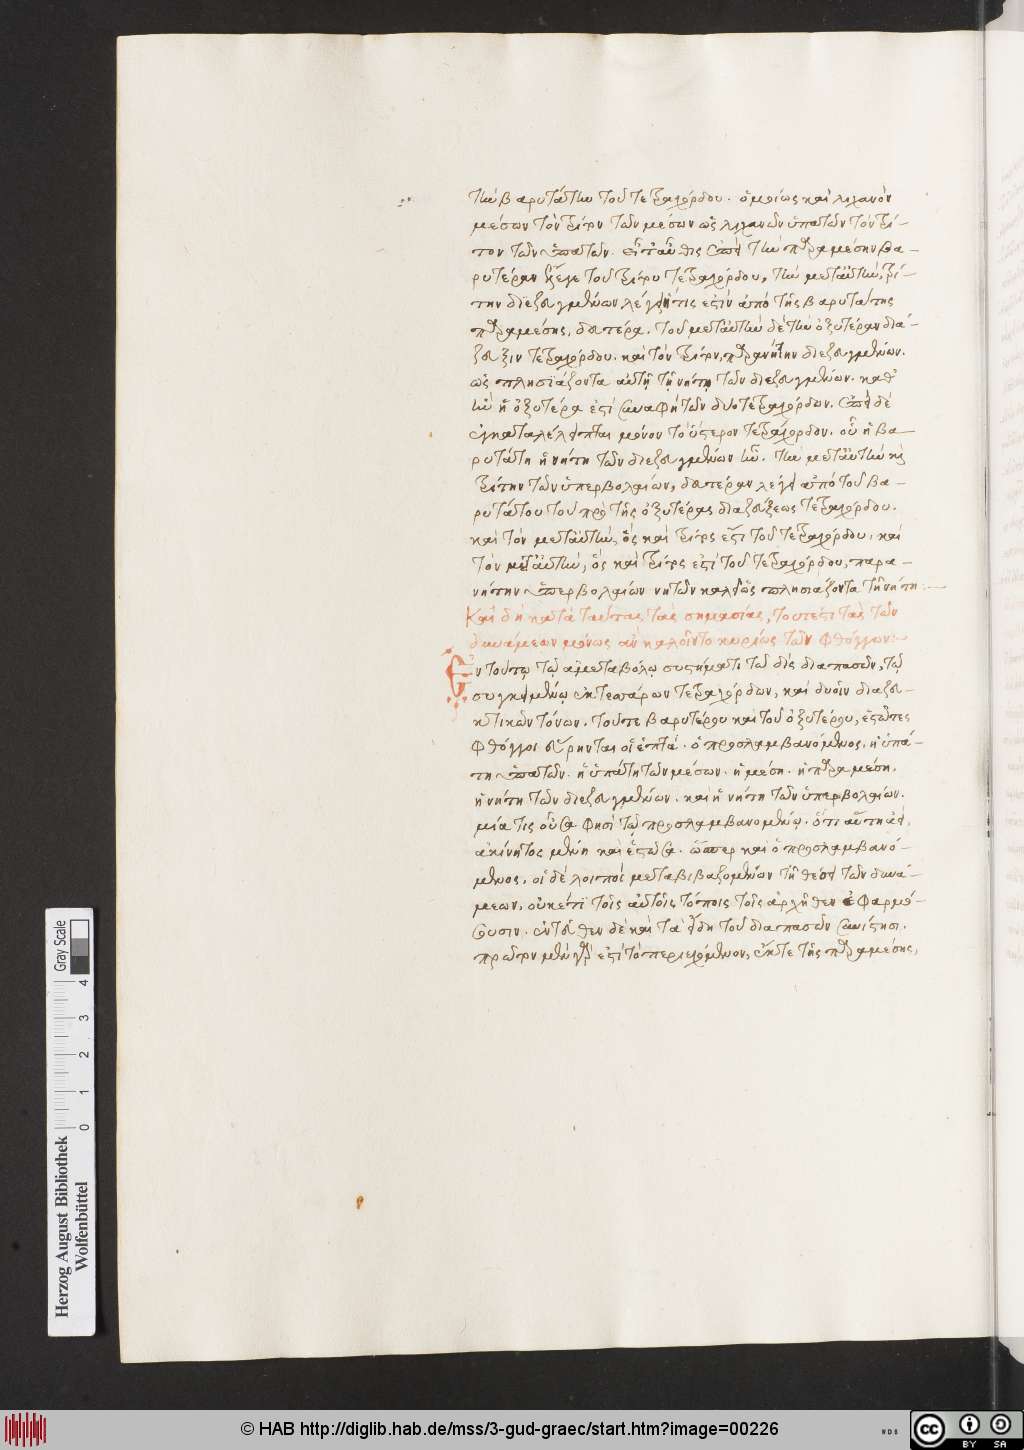 τὴν βαρυτάτην τοῦ τετραχόρδου. ὁμοίως καὶ λιχανὸν
μέσων τὸν τρίτον τῶν μέσων ὡς λιχανὸν ὑπατῶν τὸν τρί-
τον τῶν ὑπατῶν. εἶτ' αὖθις ἐπὶ τὴν παραμέσην βα-
ρυτέραν τοῦ τρίτου τετραχόρδου, τὴν μετ' αὐτὴν, τρί-
την διεζευγμένων λέγει ἥτις ἐστὶν ἀπὸ τῆς βαρυτάτης
παραμέσης, δευτέρα. τοῦ μετ' αὐτὴν δὲ τὴν ὀξυτέραν διά-
ζευξιν τετραχόρδου. καὶ τὸν τρίτον, παρανήτην διεζευγμένων.
ὡς πλησιάζοντα αὐτῇ τῇ νήτῃ τῶν διεζευγμένων. καθ'
ἣν ἡ ὀξυτέρα ἐστὶ συναφὴ τῶν δύο τετραχόρδων. ἐπεὶ δὲ
ἐγκαταλέλειπται μόνον τὸ ὕστερον τετράχορδον. οὗ ἡ βα-
ρυτάτη ἡ νήτη τῶν διεζευγμένων ἦν. τὴν μετ' αὐτὴν καὶ
τρίτην τῶν ὑπερβολαίων, δευτέραν λέγει ἀπὸ τοῦ βα-
ρυτάτου τοῦ πρὸ τῆς ὀξυτέρας διαζεύξεως τετραχόρδου.
καὶ τὸν μετ' αὐτὴν, ὃς καὶ τρίτος ἐστὶ τοῦ τετραχόρδου, καὶ
τὸν μετ' αὐτὴν, ὃς καὶ τρίτος ἐστὶ τοῦ τετραχόρδου, παρα-
νήτην ὑπερβολαίων νητῶν καλεῖ ὡς πλησιάζοντα τῇ νήτῃ
Καὶ δὴ κατὰ ταύτας τὰς σημασίας, τουτέστι τὰς τῶν
δυνάμεων μόνως ἂν καλοῖντο κυρίως τῶν φθόγγων:
Ἐν τούτῳ τῷ ἀμεταβόλῳ συστήματι τῷ δὶς διαπασῶν, τῷ
συγκειμένῳ ἐκ τεσσάρων τετραχόρδων, καὶ δυοῖν διαζευ-
κτικῶν τόνων. τοῦ τε βαρυτέρου καὶ τοῦ ὀξυτέρου, ἑστῶτες
φθόγγοι εὕρηνται οἱ ἑπτά. ὁ προσλαμβανόμενος. ἡ ὑπά-
τη ὑπατῶν. ἡ ὑπάτη τῶν μέσων. ἡ μέση. ἡ παραμέση.
ἡ νήτη τῶν διεζευγμένων. καὶ ἡ νήτη τῶν ὑπερβολαίων.
μία τις οὖσα φησὶ τῷ προσλαμβανομένῳ. ὅτι αὕτη ἀεὶ,
ἀκίνητος μένη καὶ ἑστῶσα. ὥσπερ καὶ ὁ προσλαμβανό-
μενος. οἱ δὲ λοιποὶ μεταβιβαζομένων τῇ θέσει τῶν δυνά-
μεων, οὐκέτι τοῖς αὐτοῖς τόποις τοῖς ἀρχῆθεν ἐφαρμό-
σουσιν. ἐντεῦθεν δὲ καὶ τὰ εἴδη τοῦ διαπασῶν συνίστησι.
πρῶτον μὲν γάρ ἐστι τὸ περιεχόμενον, ἔκ τε τῆς παραμέσης,
Herzog August Bibliothek
Wolfenbüttel
0 1 2 3 4
Gray Scale
© HAB http://diglib.hab.de/mss/3-gud-graec/start.htm?image=00226
WDB
cc BY SA